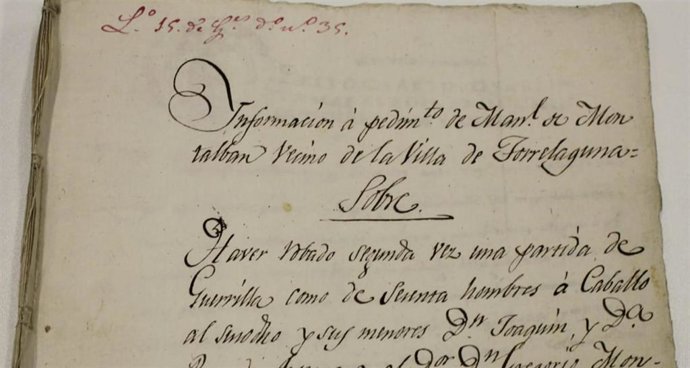 Lº 15. de
dº nº 35.
Informacion á pedimto de Manl de Mon
talban Vecino de la Villa de Torrelaguna=
Sobre
Haver robado segunda vez una partida de
Guerrilla como de Seunta hombres á Caballo
al susodho y sus menores Dn Joaquin, y Dª
Dor Dn Gregorio Mon-